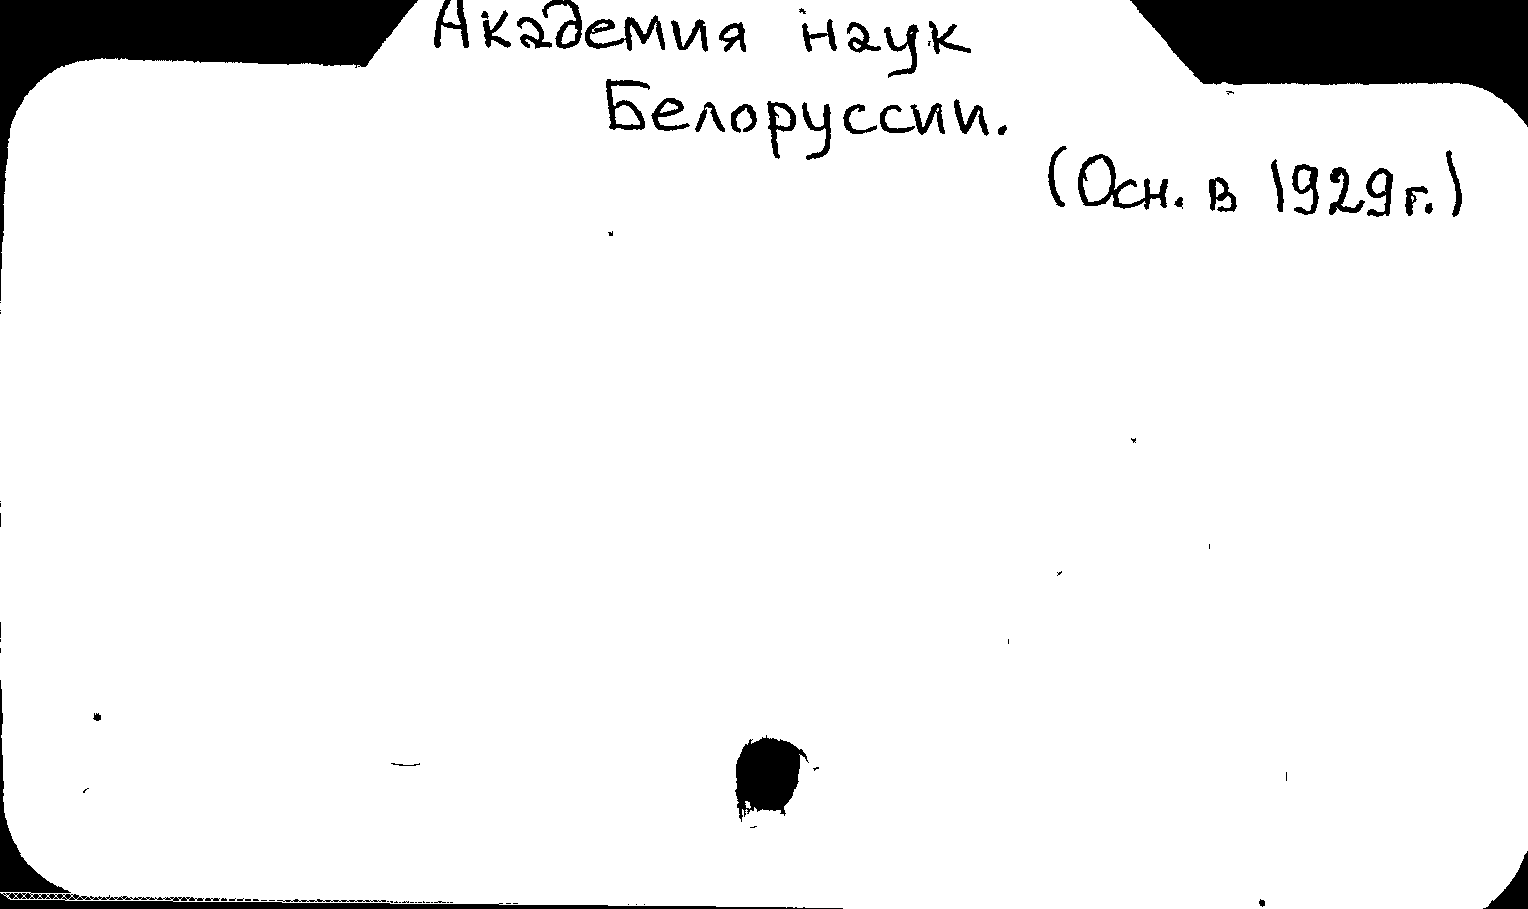 Академия наук
Белоруссии.
(Осн. в 1929г.)